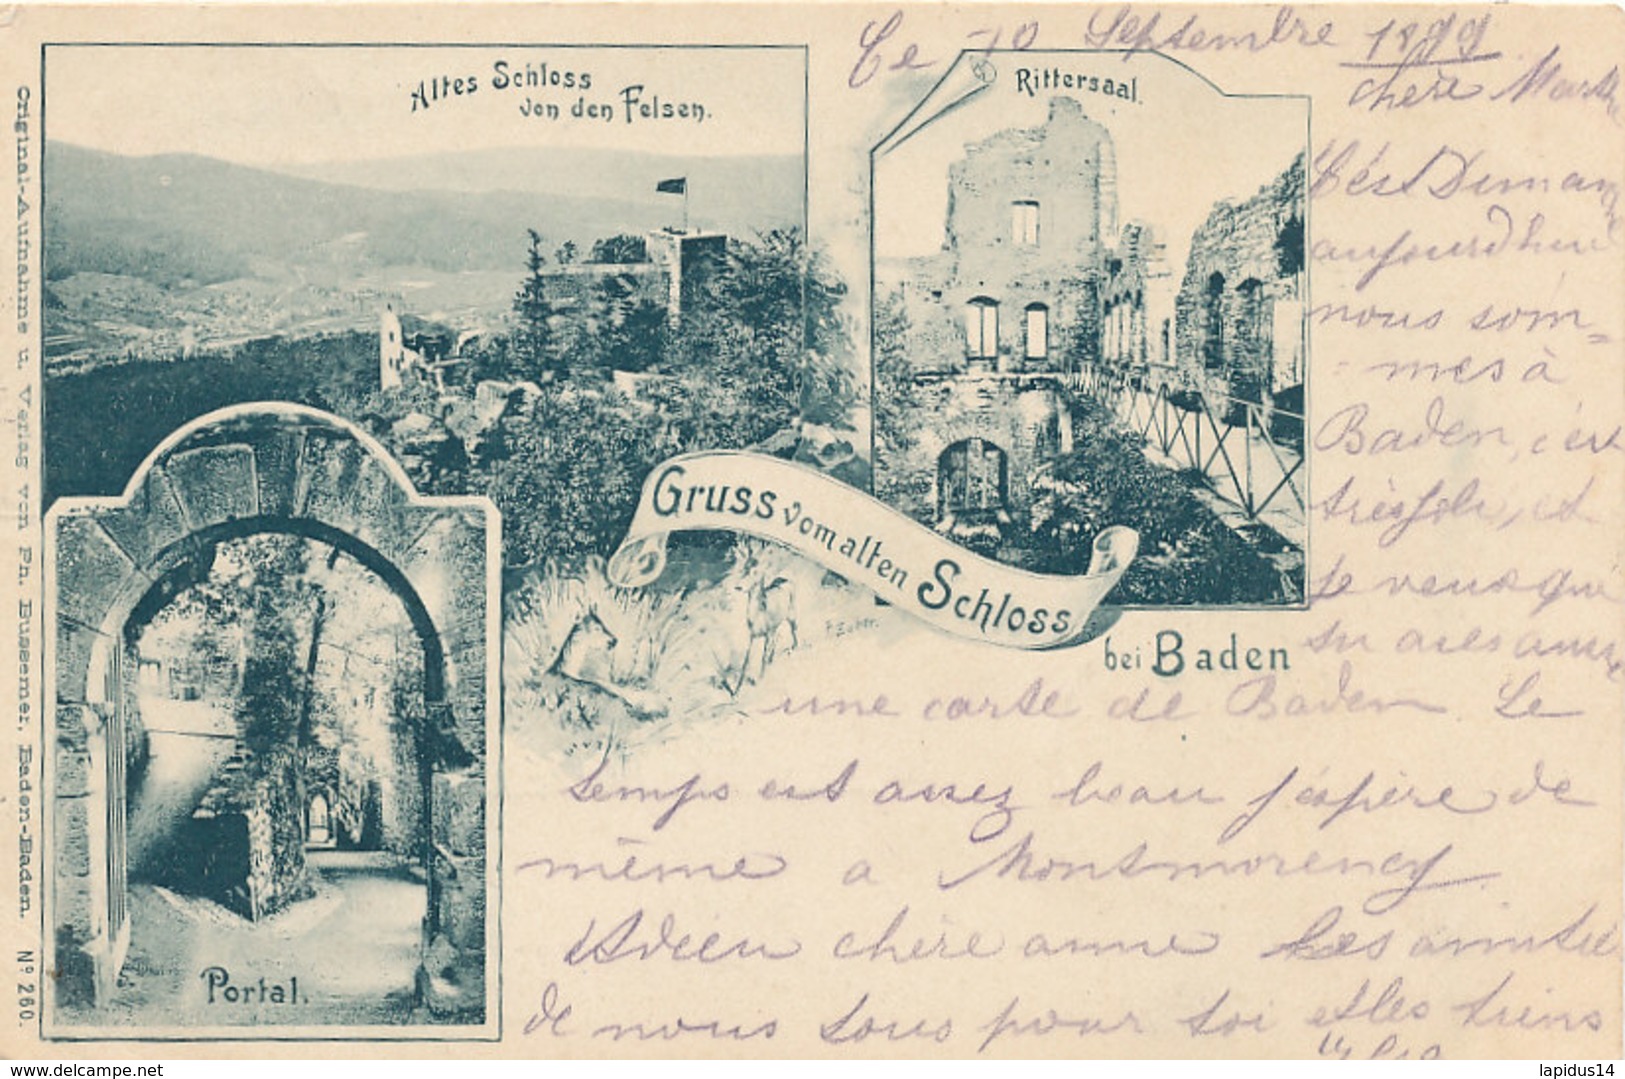 Altes Schloss
von den Felsen.
Rittersaal.
Portal.
Gruss vom alten Schloss
bei Baden
F. Suter.
Original-Aufnahme u. Verlag von Ph. Bussemer, Baden-Baden. Nº 260.
Ce 10 Septembre 1899
chère Marthe
C'est Diman
aujourd'hui
nous som=
=mes à
Baden, c'est
très joli, et
je veux que
tu aies aussi
une carte de Baden Le
temps est assez beau j'éspère de
même a Montmorency
Adieu chère amie Les amitiés
de nous tous pour toi et les tiens
www.delcampe.net
lapidus14